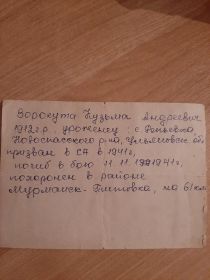 Ворокута Кузьма Андреевич
1912 г.р. уроженец: с.
Новоспасского р-на, Ульяновск об
призван в СА в 1941г,
погиб в бою 11.11.1941г,
похоронен в районе
Мурманск- на 61 км